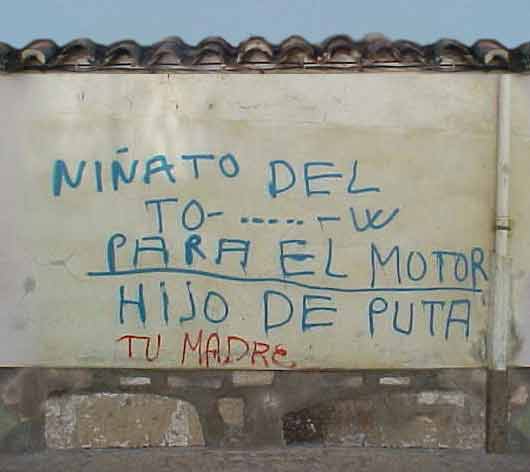 NIÑATO DEL
TO- ..... -W
PARA EL MOTOR
HIJO DE PUTA
TU MADRE